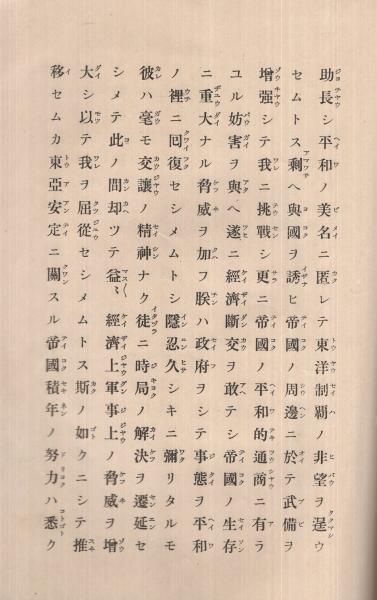 助長シ平和ノ美名ニ匿レテ東洋制覇ノ非望ヲ逞ウ
セムトス剩ヘ與國ヲ誘ヒ帝國ノ周邊ニ於テ武備ヲ
增强シテ我ニ挑戰シ更ニ帝國ノ平和的通商ニ有ラ
ユル妨害ヲ與ヘ遂ニ經濟斷交ヲ敢テシ帝國ノ生存
ニ重大ナル脅威ヲ加フ朕ハ政府ヲシテ事態ヲ平和
ノ裡ニ囘復セシメムトシ隱忍久シキニ彌リタルモ
彼ハ毫モ交讓ノ精神ナク徒ニ時局ノ解決ヲ遷延セ
シメテ此ノ間却ツテ益〻經濟上軍事上ノ脅威ヲ增
大シ以テ我ヲ屈從セシメムトス斯ノ如クニシテ推
移セムカ東亞安定ニ關スル帝國積年ノ努力ハ悉ク